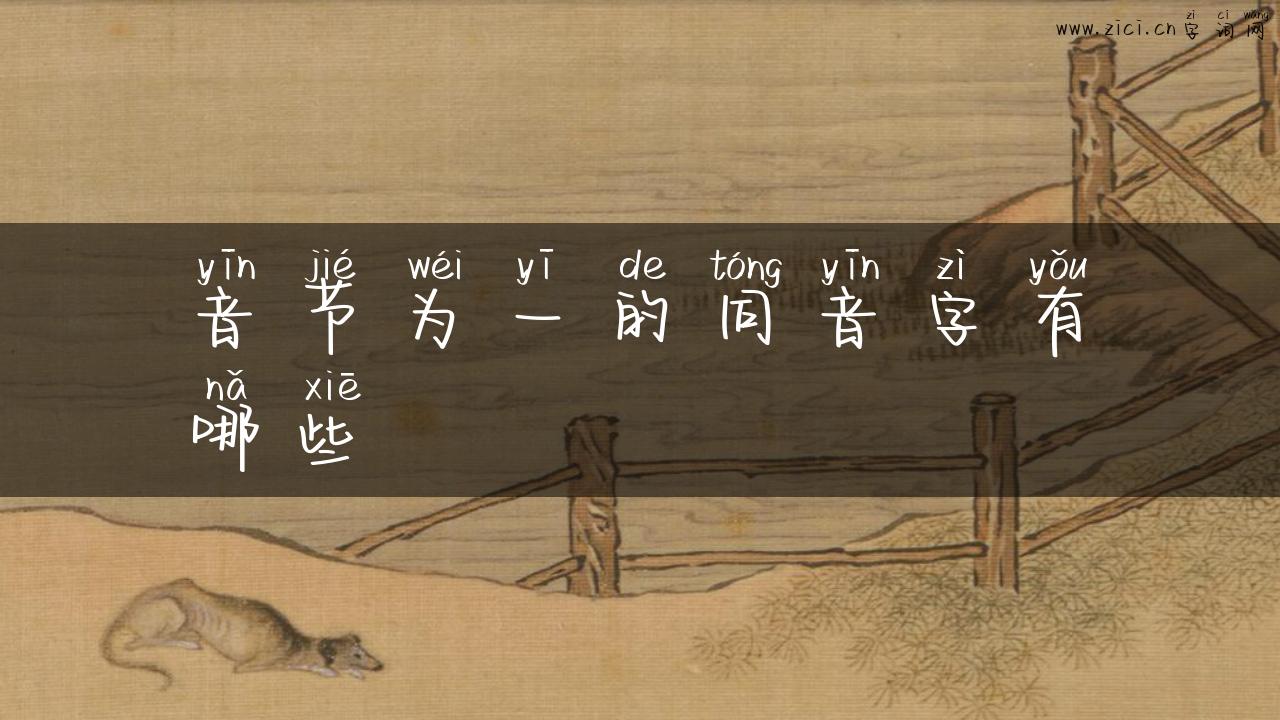 zì cí wǎng
www.zici.cn 字词网
yīn jié wéi yī de tóng yīn zì yǒu
音节为一的同音字有
nǎ xiē
哪些